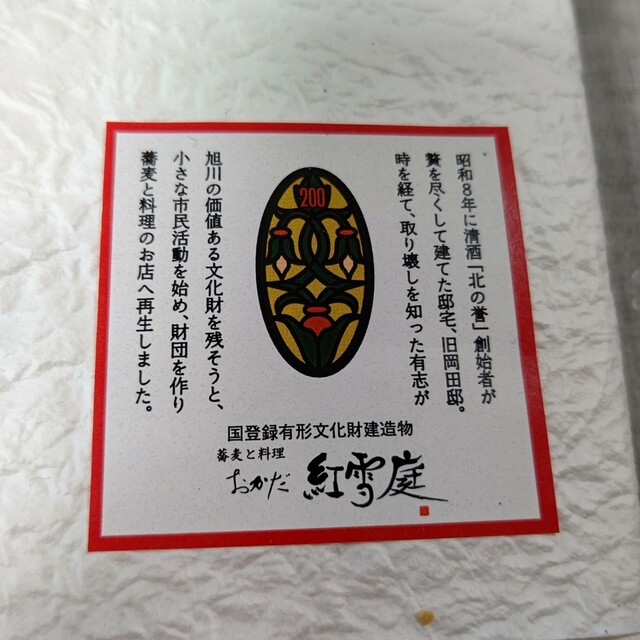 昭和8年に清酒「北の誉」創始者が
贅を尽くして建てた邸宅、旧岡田邸。
時を経て、取り壊しを知った有志が
200
旭川の価値ある文化財を残そうと、
小さな市民活動を始め、財団を作り
蕎麦と料理のお店へ再生しました。
国登録有形文化財建造物
蕎麦と料理
おかだ 紅雪庭